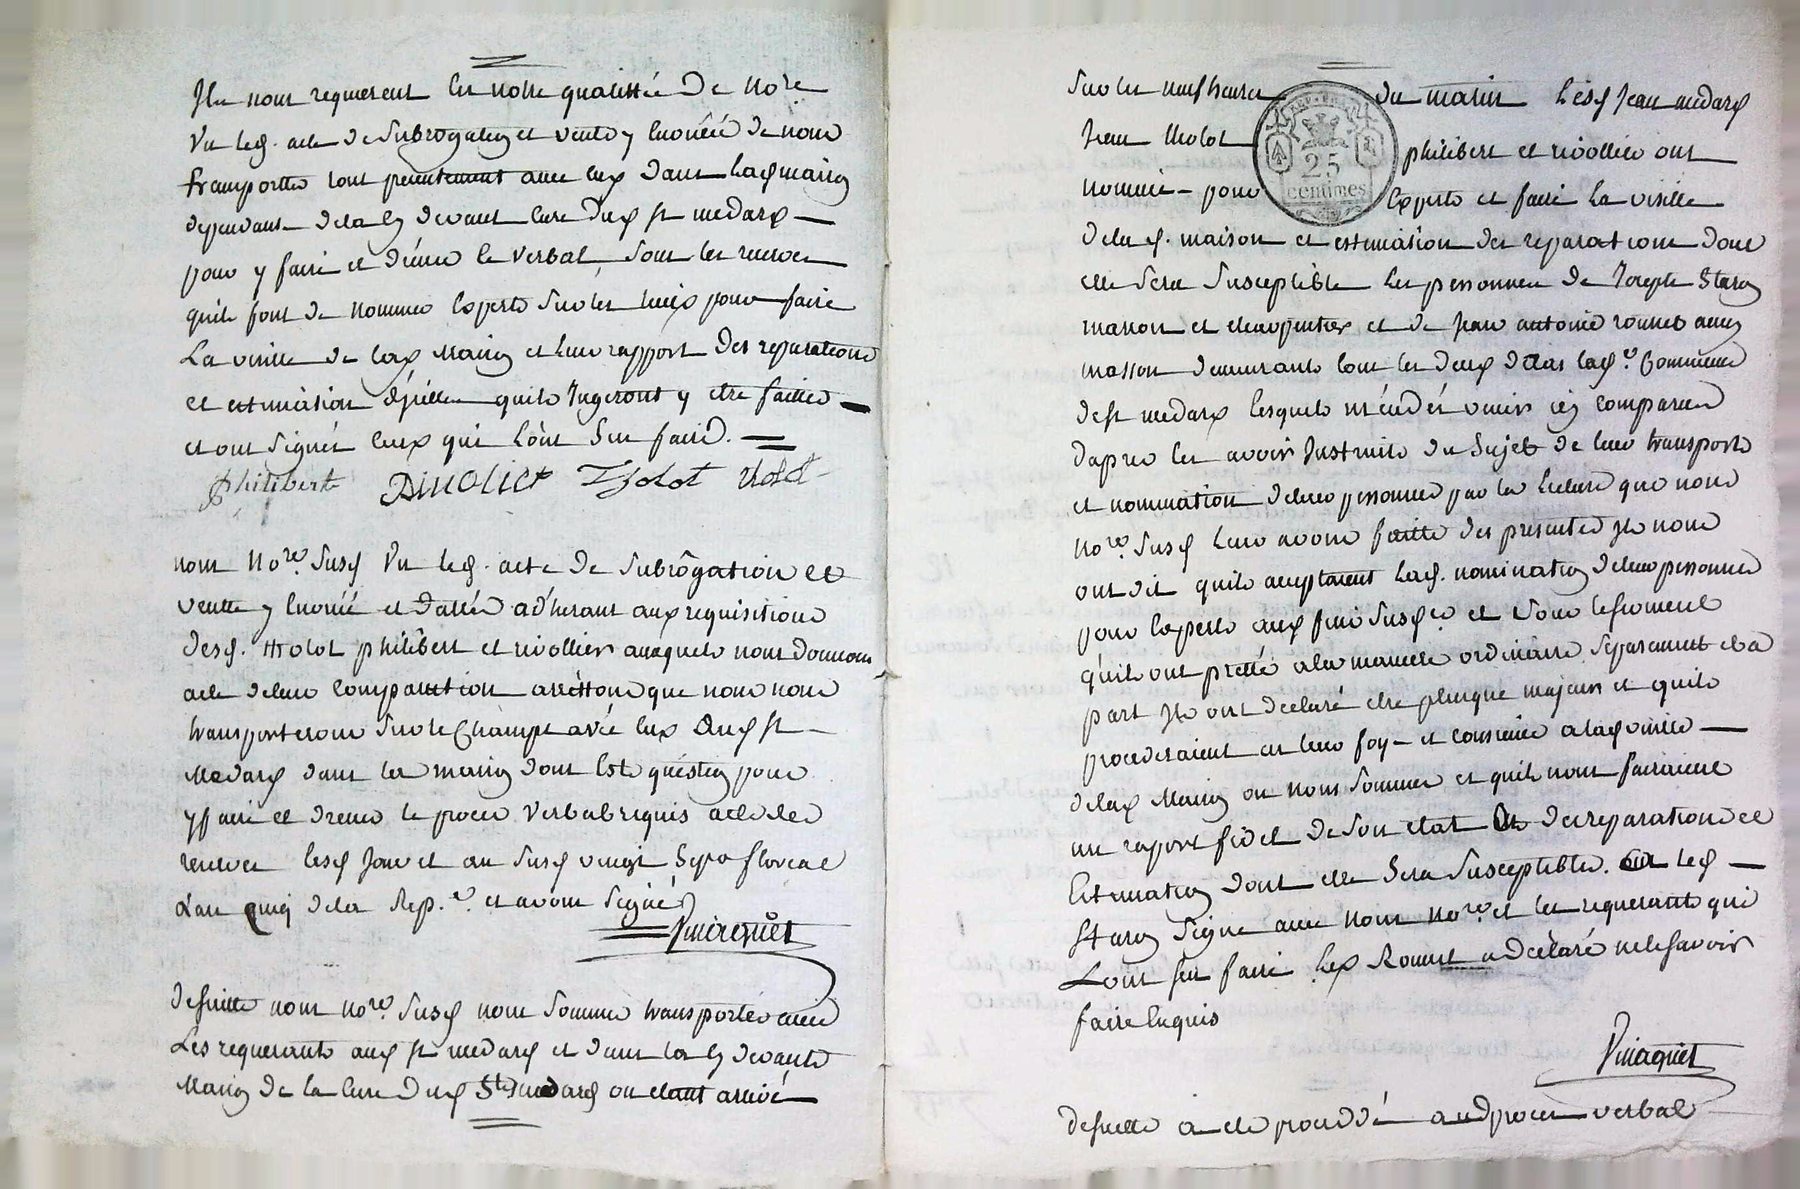 Ils nous requierent en notre qualitté de No.re
Vu led. acte de Subrogation et vente y enoncée de nous
transporter tout presentement avec eux dans lad. maison
dependant de la cy devant cure dud. St medard
pour y faire et dresser le verbal sous les reserves
quils font de nommer Experts sur les lieux pour faire
La visitte de lad. Maison et leur rapport des reparations
et estimation d'jcelles quils Jugeront y etre faittes
et ont signés ceux qui l'ont sçu faire.
Philibert Rivolier Tholot tholot
nous No.re susd. Vu led. acte de Subrôgation et
vente y enoncé et datté adhérant aux requisitions
desd. tholot philibert et rivollier auxquels nous donnons
acte de leur comparution arrêttons que nous nous
transporterons sur le Champt avéc eux Aud. St
Medard dans la maison dont Est quéstion pour
y faire et dresser le proces verbal requis acte des
reserves lesd. Jour et an susd. vingt sept floreal
L'an cinq de la Rep.e et avons signé
Pinaguet
de suitte nous no.re susd. nous sommes transportés avec
Les requerants aud. St medard et dans la cy devante
Maison de la cure dud. St medard ou etant arrivés
sur les neuf heures du matin Lesd. Jean medard
Jean tholot philibert et rivollier ont
nommé pour Experts et faire la visitte
REP. FRA.
25
centimes
de lad. maison et estimation des reparations dont
elle sera susceptible les personnes de Joseph Staron
masson et charpentier et de Jean antoine rounet aussy
masson demeurants tous les deux dans lad.e Commune
de St medard lesquels mandés venir icy comparus
d'apres les avoir Instruits du sujet de leur transport
et nomination de leur personnes par la lecture que nous
No.re susd. leur avons faitte des presentes Ils nous
ont dit quils acceptaient lad. nomination de leur personnes
pour experts aux fins susd.es et sous le serment
qu'ils ont pretté a la maniere ordinaire separement et a
part Ils ont declaré etre plusque majeurs et quils
procederaient en leur foy et consience a lad. visitte
de lad. Maison ou nous sommes et quils nous fairaient
un raport fidel de son etat des reparations et
Estimation dont elle sera susceptible. led.
Staron signe avec nous No.re et les requerants qui
L'ont sçu faire led. Rounet a déclaré ne le savoir
faire Enquis
Pinaguet
de suitte a eté procedé aud. proces verbal